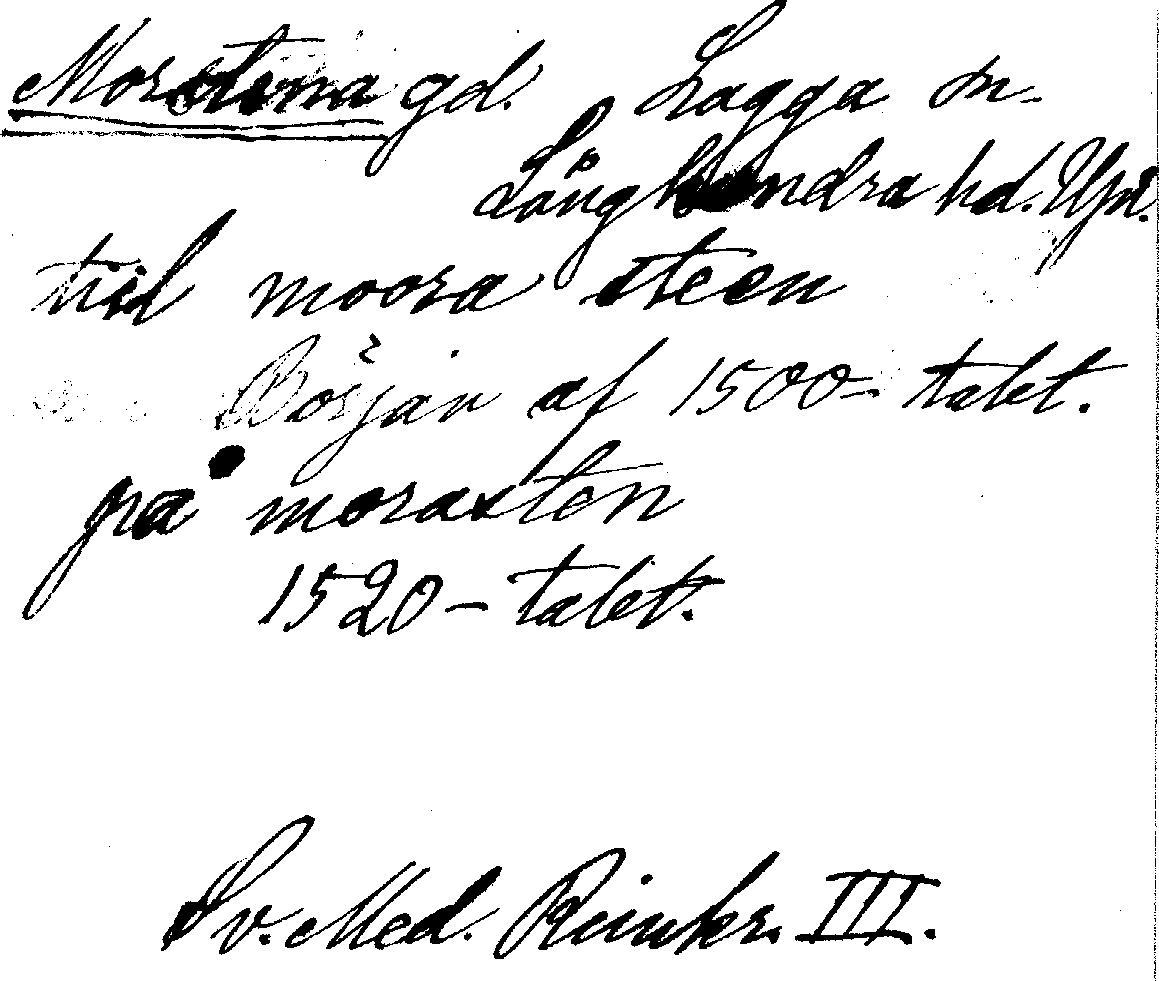 Morstena gd. Lagga sn.
Långhundra hd. Upl.
tiil moora steen
Början af 1500-talet.
på morasten
1520-talet.
Sv. Med. Rimkr. III.